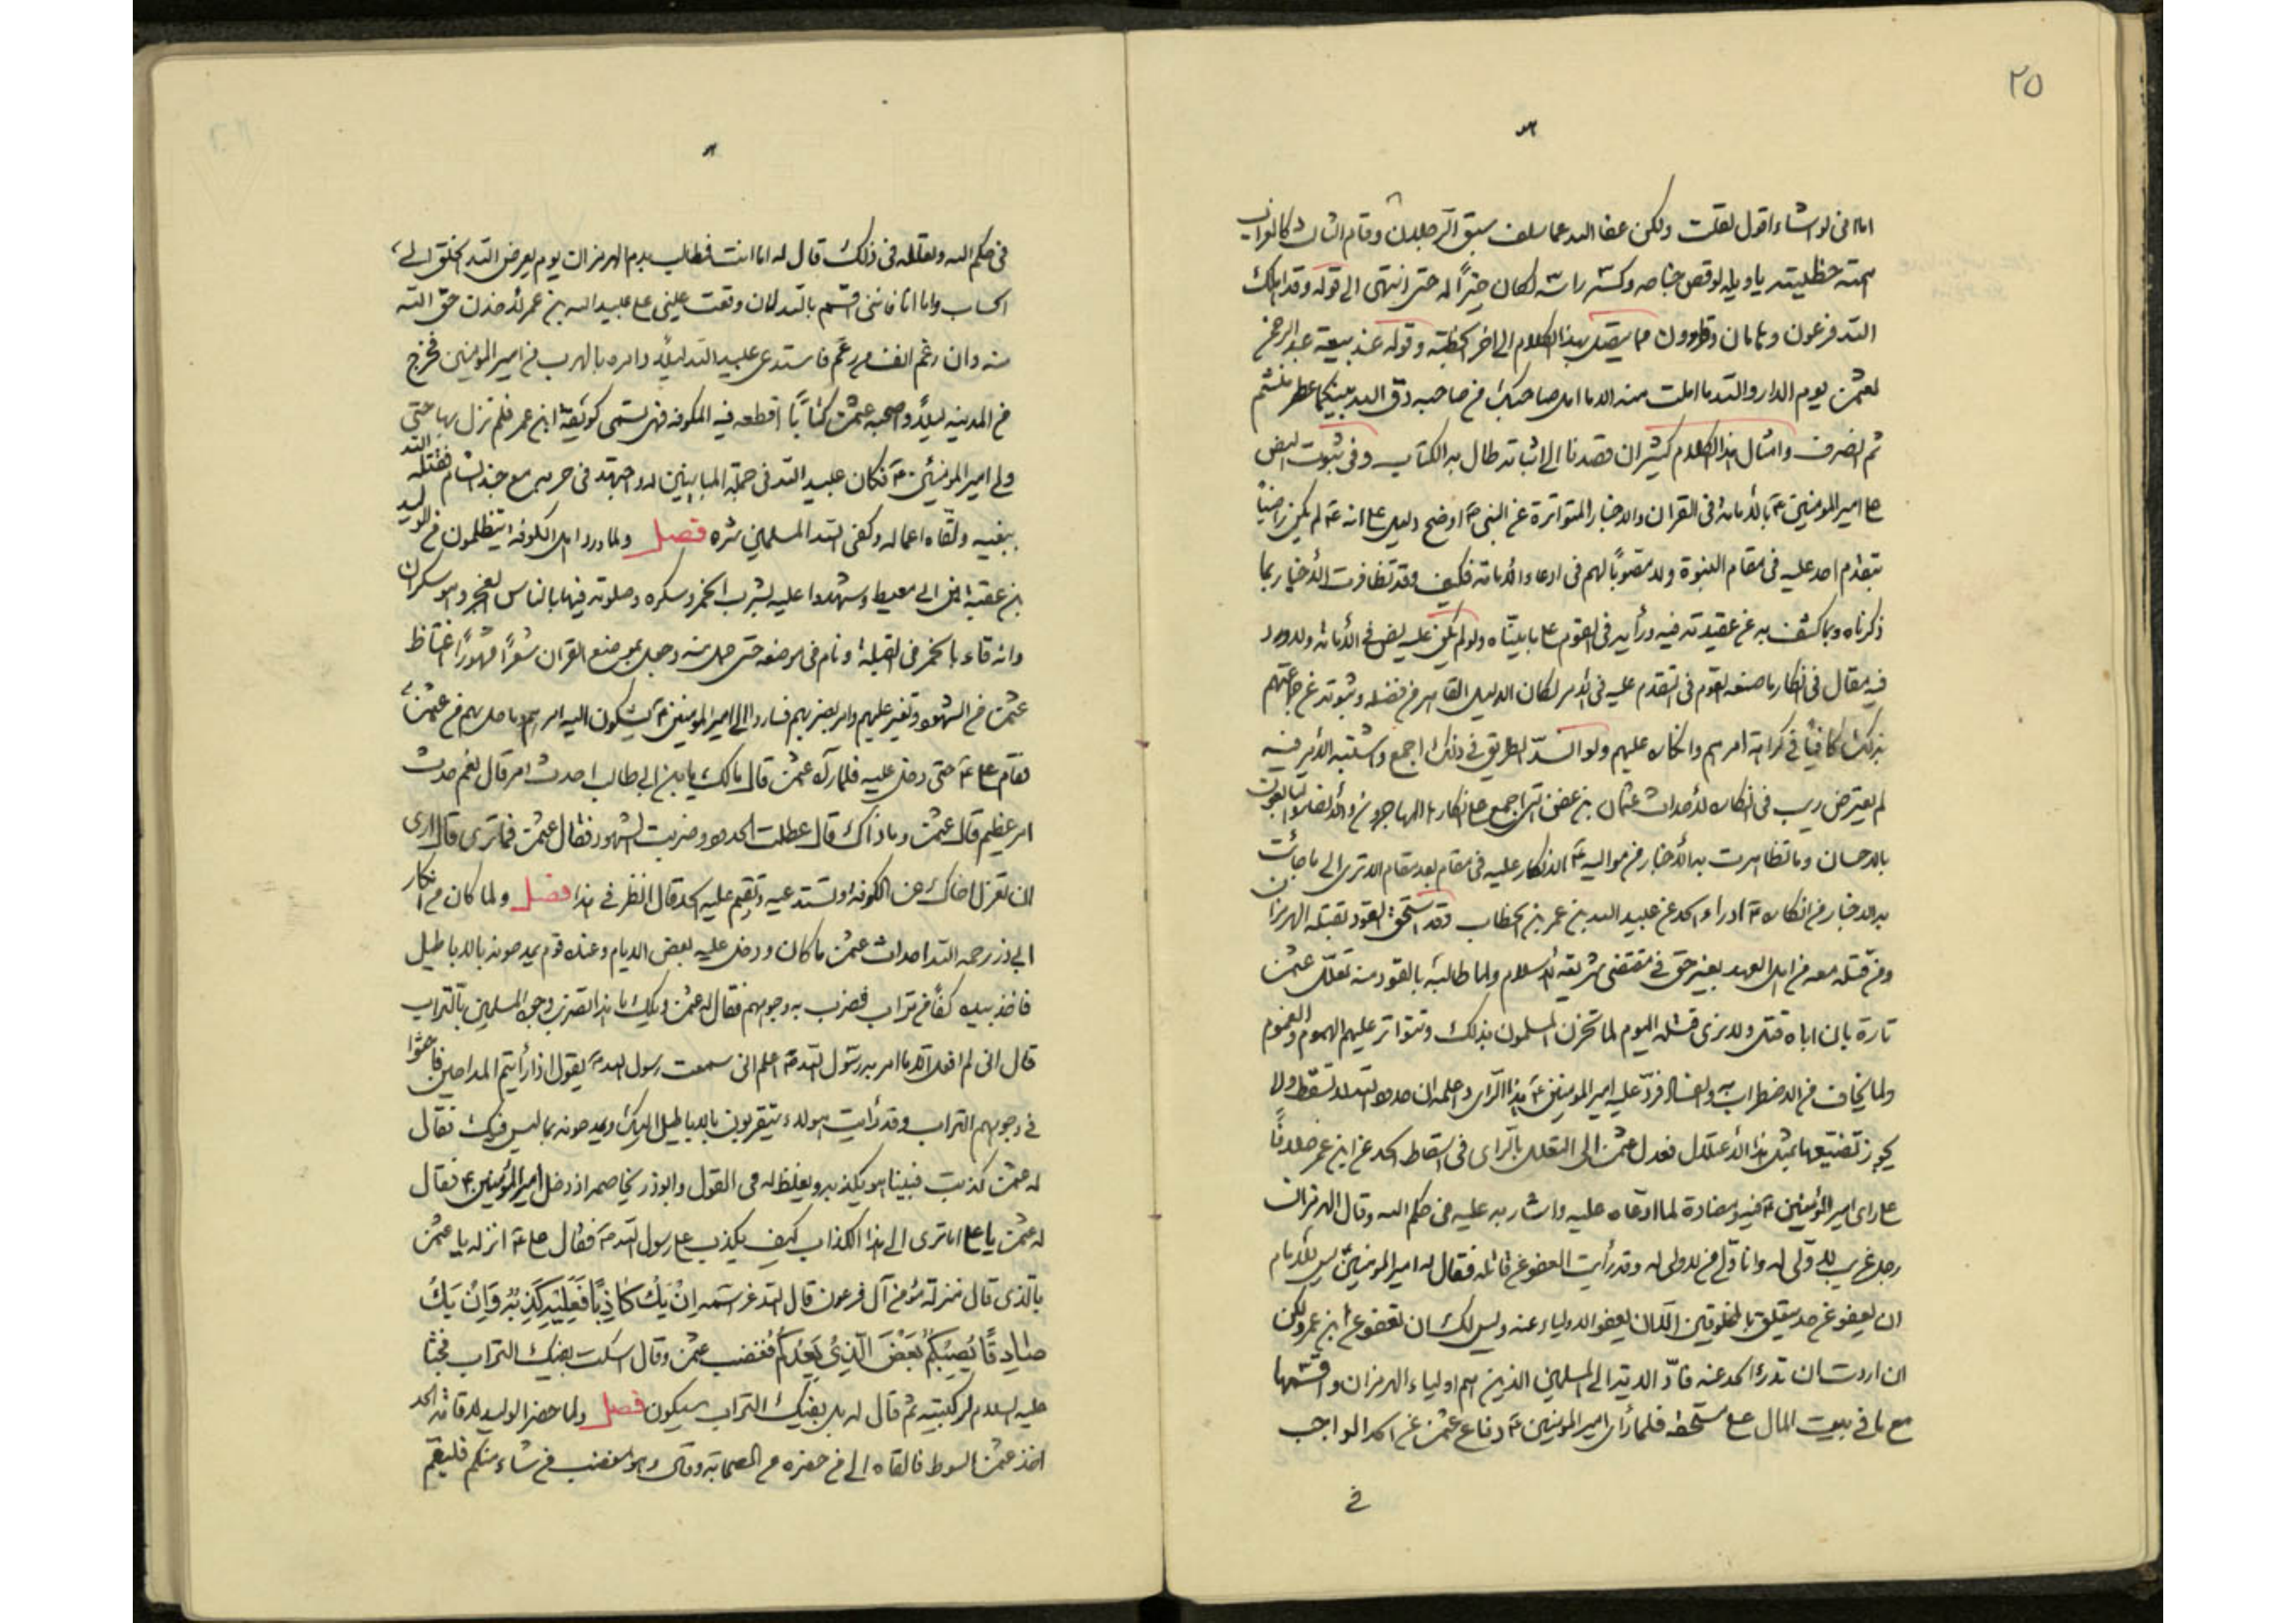 ٢٥
اما انى لو اشاء اقول لقلت ولكن عفا الله عما سلف سبق الرجلان وقام الثالث كالغراب
همته بطنه يا ويله لو قص جناحه وقطع راسه لكان خيراً له حتى انتهى الى قوله وقد اهلك
الله فرعون وهامان وقارون مما يتصل بهذا الكلام الى اخر الخطبة وقوله عند بيعة عبد الرحمن
لعثمن يوم الدار والله ما املت منه الا ما امل صاحبك من صاحبه دق الله بينكما عطر منشم
ثم انصرف وامثال هذا الكلام كثير ان قصدنا الى اثباته طال به الكتاب وفى ثبوت النص
على امير المؤمنين ع بالامامة فى القران والاخبار المتواترة عن النبى ص اوضح دليل على انه ع لم يكن راضياً
بتقدم احد عليه فى مقام النبوة ولا مصوباً لهم فى ادعاء الامامة فكيف وقد تظافرت الاخبار بما
ذكرناه وبما كشف به عن عقيدته فيه ورأيه فى القوم على ما بيناه ولو لم يكن عليه نص فى الامامة ولا ورد
فيه مقال فى انكار ما صنعه القوم فى التقدم عليه فى الامر لكان الدليل القاهر من فضله وثبوته عن جماعتهم
بذلك كافياً فى كراهة امرهم وانكاره عليهم ولو انسدّ الطريق فى ذلك اجمع واشتبه الامر فيه
لم يعترض ريب فى انكاره لأحداث عثمان بن عفان التى اجمع على انكارها المهاجرون والانصار والتابعون
بالاحسان وما تظاهرت به الأخبار من مواليه ع الانكار عليه فى مقام بعد مقام الا ترى الى ما جائت
به الاخبار من انكاره ع ادراء الحد عن عبيد الله بن عمر بن الخطاب وقد استحق القود بقتله الهرمزان
ومن قتله معه من اهل العهد بغير حق فى مقتضى شريعة الاسلام ولما طالبه بالقود منه تعلّل عثمن
تارة بان اباه قتل ولا يرى قتله اليوم لما تحزن المسلمون بذلك وتتواتر عليهم الهموم والغموم
ولما يخاف من الاضطراب به والفساد فردّ عليه امير المؤمنين ع هذا الرأى واعلمه ان حدود الله لا تسقط ولا
يجوز تضييعها بمثل هذا الاعتلال فعدل عثمن الى التعلل بالرأى فى اسقاط الحد عن ابن عمر خلافاً
على رأى امير المؤمنين ع فيه ومضادة لما ادعاه عليه واشار به عليه من حكم الله وقال الهرمزان
رجل غريب لا ولى له وانا ولى من لا ولى له وقد رأيت العفو عن قاتله فقال له امير المؤمنين ليس للامام
ان يعفو عن حد يتعلق بالمخلوقين الا ان يعفو الاولياء عنه وليس لك ان تعفو عن ابن عمر ولكن
ان اردت ان تدرأ الحد عنه فادّ الدية الى المسلمين الذين هم اولياء الهرمزان واقسمها
مع ما فى بيت المال على مستحقه فلما رأى امير المؤمنين ع دفاع عثمن عن الحد الواجب
فى
فى حكم الله وتعلله فى ذلك قال له اما انت فمطالب بدم الهرمزان يوم يعرض الله الخلق الى
الحساب واما انا فاننى اقسم بالله لان وقعت عينى على عبيد الله بن عمر لأخذن حق الله
منه وان رغم انف من رغم فاستدعى عبيد الله ليلاً وامره بالهرب من امير المؤمنين فخرج
من المدينه ليلاً واصحبه عثمن كتاباً اقطعه فيه الكوفه فهى تسمى كوئفة ابن عمر فلم تزل بها حتى
ولى امير المؤمنين ع فكان عبيد الله فى جملة المباينين له واجتهد فى حربه مع جند الشام فقتله الله
ببغيه ولقاه اعماله وكفى الله المسلمين شره فصل ولما ورد اهل الكوفه يتظلمون من الوليد
بن عقبة ابن ابى معيط وشهدوا عليه بشرب الخمر وسكره وصلوته فيها بالناس الفجر وهو سكران
وانه قاء بالخمر فى القبلة ونام فى موضعه حتى حمل منه وجعل موضع القران شعراً مهوراً اغتاظ
عثمن من الشهود وتغير عليهم وامر بضربهم فساروا الى امير المؤمنين ع يشكون اليه امرهم وما حل بهم من عثمن
فقام على ع حتى دخل عليه فلما رآه عثمن قال مالك يا بن ابى طالب احدث امر قال نعم حدث
امر عظيم قال عثمن وما ذاك قال عطلت الحدود وضربت الشهود فقال عثمن فما ترى قال ارى
ان تعزل اخاك عن الكوفه وتستدعيه وتقيم عليه الحد قال انظر فى هذا فصل ولما كان من انكار
ابى ذر رحمه الله احداث عثمن ما كان ودخل عليه بعض الايام وعنده قوم يمدحونه بالاباطيل
فاخذ بيده كفاً من تراب فضرب به وجوههم فقال له عثمن ويلك ما هذا تضرب وجوه المسلمين بالتراب
قال انى لم افعل الا ما امر به رسول الله ص اعلم انى سمعت رسول الله ص يقول اذا رأيتم المداحين فاحثوا
فى وجوههم التراب وقد رأيت هولاء يتقربون بالاباطيل اليك ويمدحونه بما ليس فيك فقال
له عثمن كذبت فبينا هو يكذبه ويغلظ له فى القول وابوذر يخاصم اذ دخل امير المؤمنين ع فقال
له عثمن يا على اما ترى الى هذا الكذاب كيف يكذب على رسول الله ص فقال على ع انزله يا عثمن
بالذى قال منزلة مؤمن آل فرعون قال الله عز اسمه اِنْ يَكُ كاذِباً فَعَلَيْهِ كَذِبُهُ وَاِنْ يَكُ
صادِقاً يُصِبْكُمْ بَعْضَ الَّذى يَعِدُكُمْ فغضب عثمن وقال اسكت بفيك التراب فجثا
عليه السلام لركبتيه ثم قال له بل بفيك التراب سيكون فصل ولما حضر الوليد لاقامة الحد
اخذ عثمن السوط فالقاه الى من حضره من الصحابة وقال وهو مغضب من شاء منكم فليقم